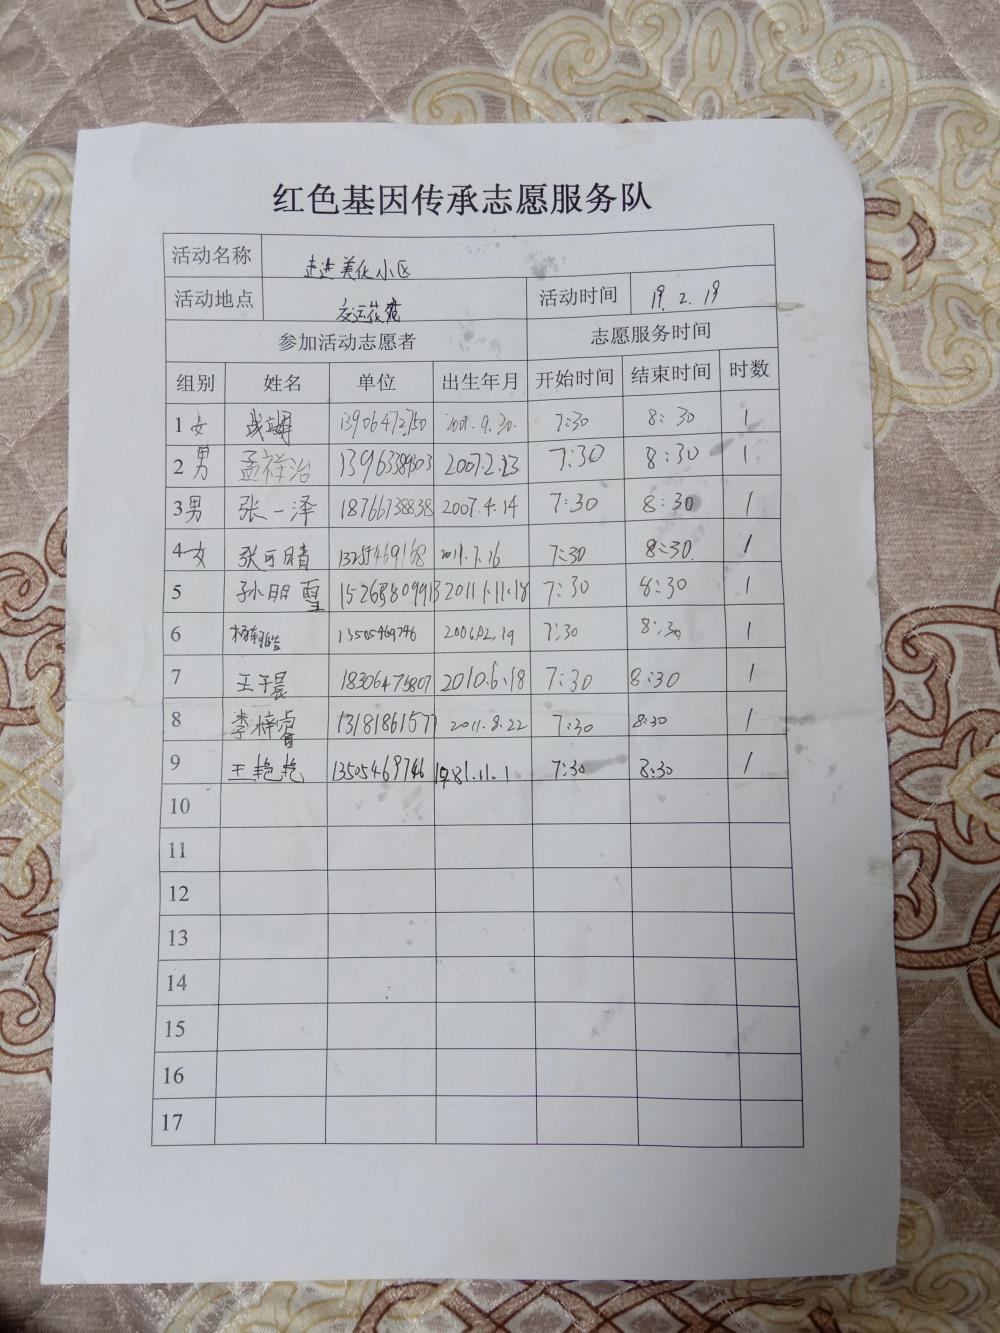 红色基因传承志愿服务队
活动名称 走进美化小区
活动地点 交运花苑 活动时间 19. 2. 19
参加活动志愿者 志愿服务时间
组别 姓名 单位 出生年月 开始时间 结束时间 时数
1 女 13906472750 2007.9.30. 7:30 8:30 1
2 男 孟祥治 2007.2.23 7:30 8:30 1
3 男 张一泽 18766738838 2007.4.14 7:30 8:30 1
4 女 张可晴 2011.7.16 7:30 8:30. 1
5 孙朋 2011.11.18 7:30 8:30 1
6 13505469746 2006.02.19 7:30 8:30 1
7 王子晨 18306475807 2010.6.18 7:30 8:30 1
8 李梓 13181861577 2011.8.22 7:30 8:30 1
9 王艳艳 13505469746 1981.11.1 7:30 8:30 1
10
11
12
13
14
15
16
17